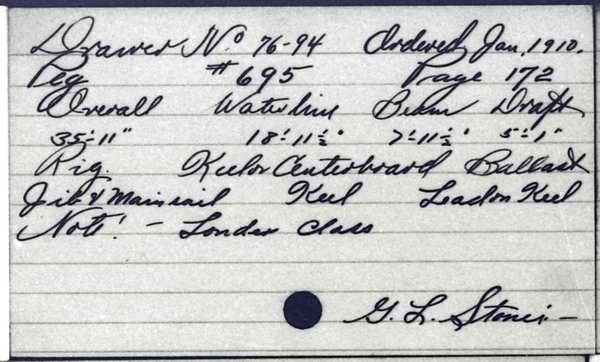 Drawer No 76-94 Ordered Jan, 1910.
Peg #695 Page 172
Overall Waterline Beam Draft
35'-11" 18'-11½" 7'-11½" 5'-1"
Rig. Keel or Centerboard Ballast
Jib & Mainsail Keel Lead on Keel
Note! - Sonder Class
G. L. Stone